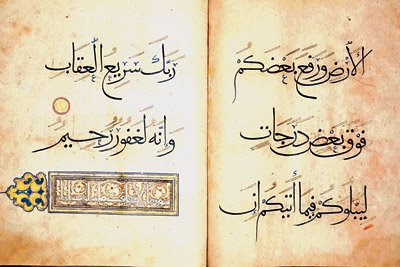 الأَرْضِ وَرَفَعَ بَعْضَكُمْ
فَوْقَ بَعْضٍ دَرَجَاتٍ
لِيَبْلُوَكُمْ فِيمَا آتَيكُمْ إِنَّ
رَبَّكَ سَرِيعُ الْعِقَابِ
وَإِنَّهُ لَغَفُورٌ رَحِيمٌ